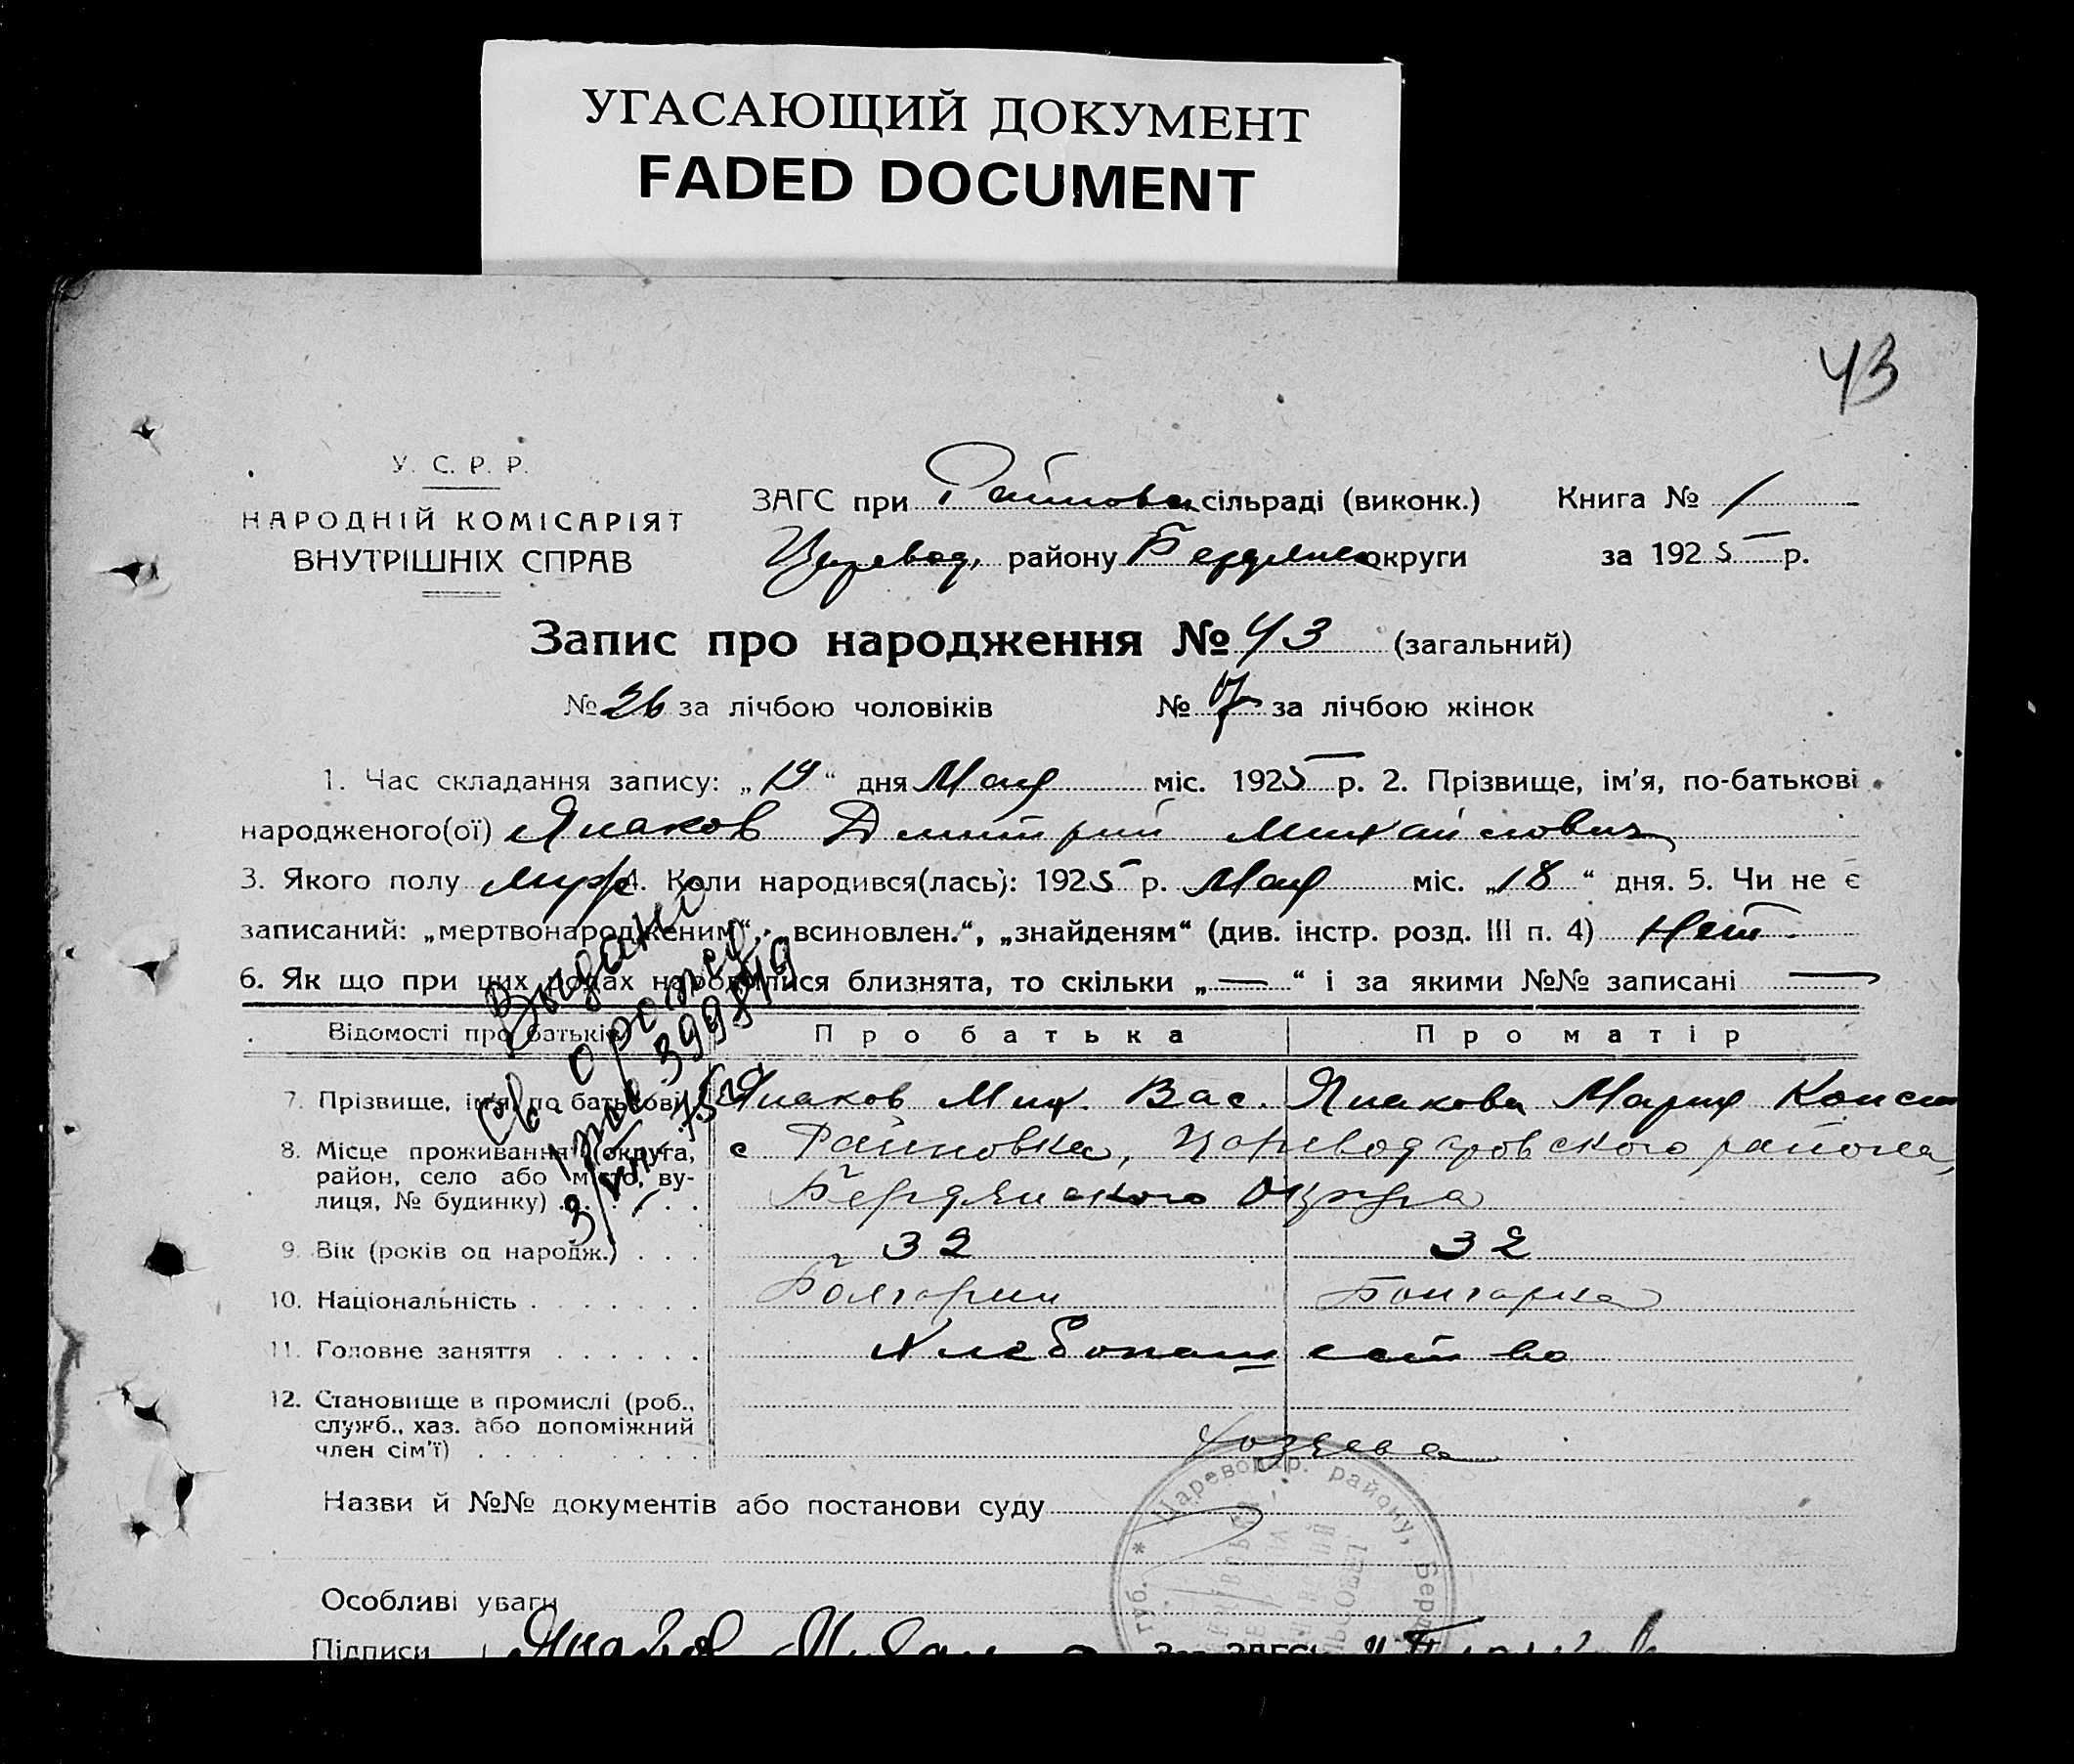 УГАСАЮЩИЙ ДОКУМЕНТ
FADED DOCUMENT
43
У. С. Р. Р.
НАРОДНІЙ КОМІСАРІЯТ
ВНУТРІШНІХ СПРАВ
ЗАГС при Райновск сільраді (виконк.) Книга № 1
Царевод. району Бердянск округи за 1925 р.
Запис про народження № 43 (загальний)
№ 26 за лічбою чоловіків № за лічбою жінок
1. Час складання запису: „19“ дня Мая міс. 1925 р. 2. Прізвище, ім'я, по-батькові
народженого(ої) Япаков Дмитрий Михайлович
3. Якого полу муж 4. Коли народився(лась): 1925 р. Мая міс. „18“ дня. 5. Чи не є
записаний: „мертвонародженим“, „всиновлен.“, „знайденям“ (див. інстр. розд. III п. 4) Нет.
6. Як що при цих родах народилися близнята, то скільки „—“ і за якими №№ записані —
Выдано
Св. о рожд
3998149
Відомості про батьків Про батька Про матір
7. Прізвище, ім'я, по батькові Япаков Мих. Вас. Япакова Мария Конст
8. Місце проживання (округа, район, село або місто, вулиця, № будинку) с Райновка, Цареводаровского района,
Бердянского Округа
9. Вік (років од народж.) . . . 32 32
10. Національність . . . . . . . Болгарин Болгарка
11. Головне заняття . . . . . . Хлебопашество
12. Становище в промислі (роб., служб., хаз. або допоміжний член сім'ї) . . . . . . . . . Хозяева
Назви й №№ документів або постанови суду
Царевод р. району, Берд
губ. *
Особливі уваги
Підписи Япаков Михаил